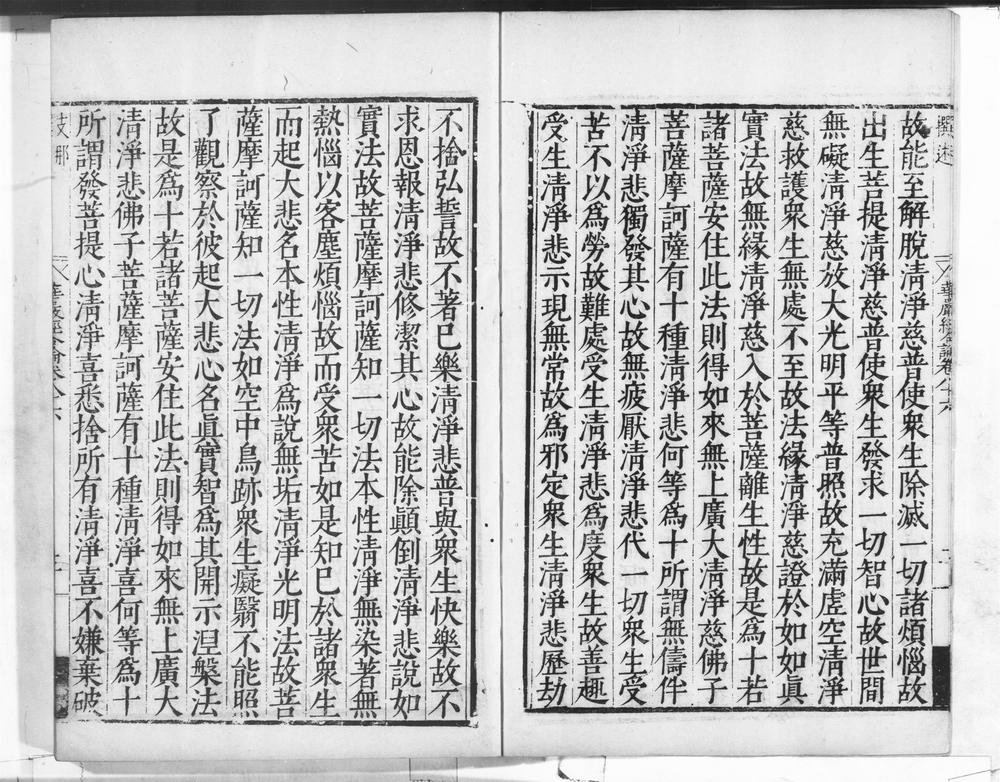 撰述
華嚴經合論卷八十六
二
故能至解脫清淨慈普使眾生除滅一切諸煩惱故
出生菩提清淨慈普使眾生發求一切智心故世間
無礙清淨慈放大光明平等普照故充滿虛空清淨
慈救護眾生無處不至故法緣清淨慈證於如如真
實法故無緣清淨慈入於菩薩離生性故是為十若
諸菩薩安住此法則得如來無上廣大清淨慈佛子
菩薩摩訶薩有十種清淨悲何等為十所謂無儔伴
清淨悲獨發其心故無疲厭清淨悲代一切眾生受
苦不以為勞故難處受生清淨悲為度眾生故善趣
受生清淨悲示現無常故為邪定眾生清淨悲歷劫
不捨弘誓故不著已樂清淨悲普與眾生快樂故不
求恩報清淨悲修潔其心故能除顛倒清淨悲說如
實法故菩薩摩訶薩知一切法本性清淨無染著無
熱惱以客塵煩惱故而受眾苦如是知已於諸眾生
而起大悲名本性清淨為說無垢清淨光明法故菩
薩摩訶薩知一切法如空中鳥跡眾生癡翳不能照
了觀察於彼起大悲心名真實智為其開示涅槃法
故是為十若諸菩薩安住此法則得如來無上廣大
清淨悲佛子菩薩摩訶薩有十種清淨喜何等為十
所謂發菩提心清淨喜悉捨所有清淨喜不嫌棄破
支那
華嚴經合論卷八十六